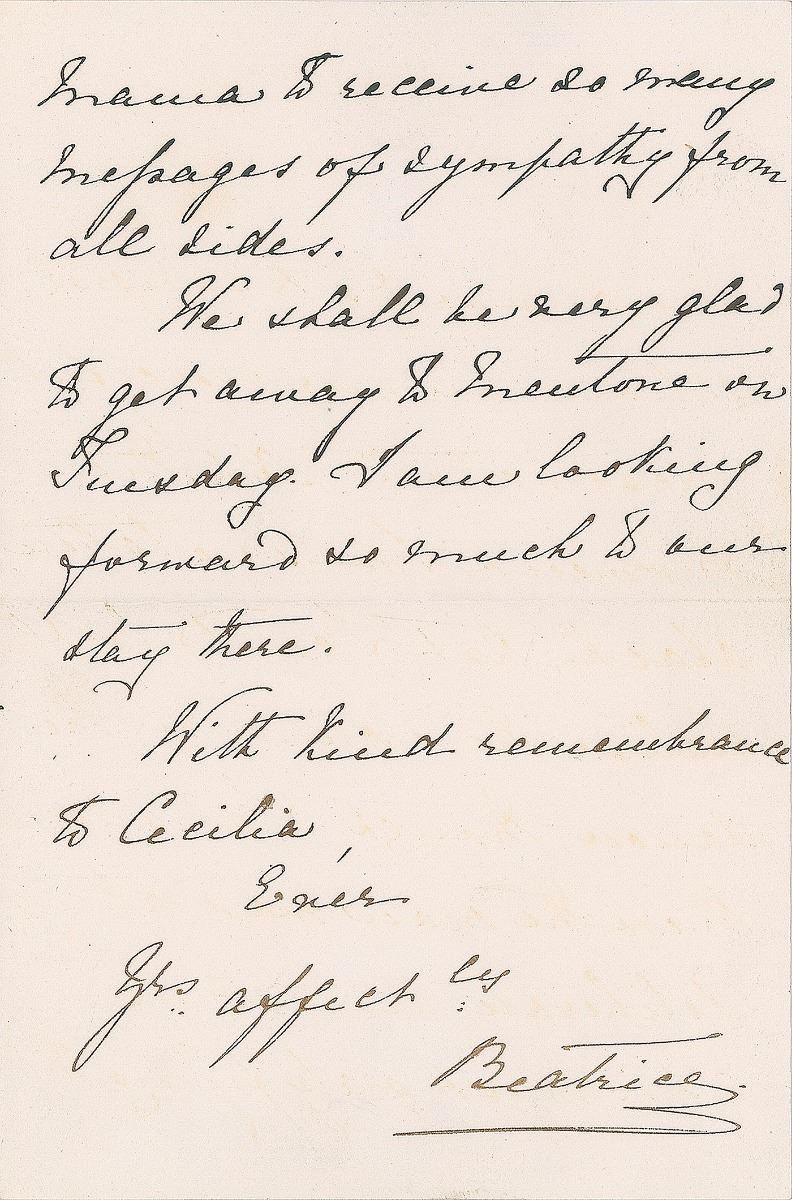 Mama to receive so many
messages of sympathy from
all sides.
We shall be very glad
to get away to Mentone on
Tuesday. I am looking
forward so much to our
stay there.
With kind remembrance
to Cecilia,
Ever
Yrs. affectly
Beatrice.